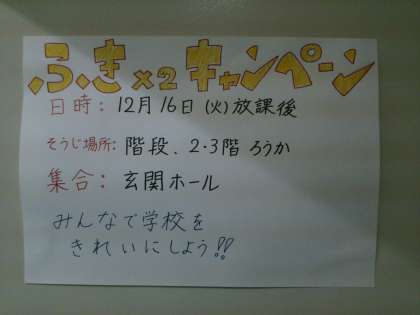 ふき×2 キャンペーン
日時：12月16日(火)放課後
そうじ場所：階段、2・3階 ろうか
集合：玄関ホール
みんなで学校を
きれいにしよう!!